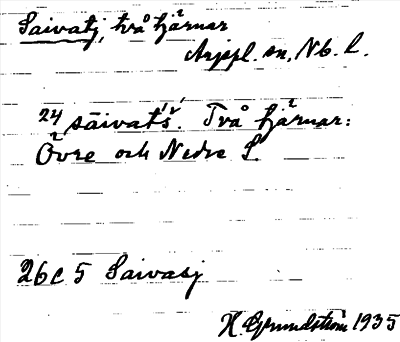 Saivatj, två tjärnar
Arjepl. sn, Nb. l.
24 sāivatś. Två tjärnar:
Övre och Nedre S.
26c 5 Saivasj
H. Grundström 1935